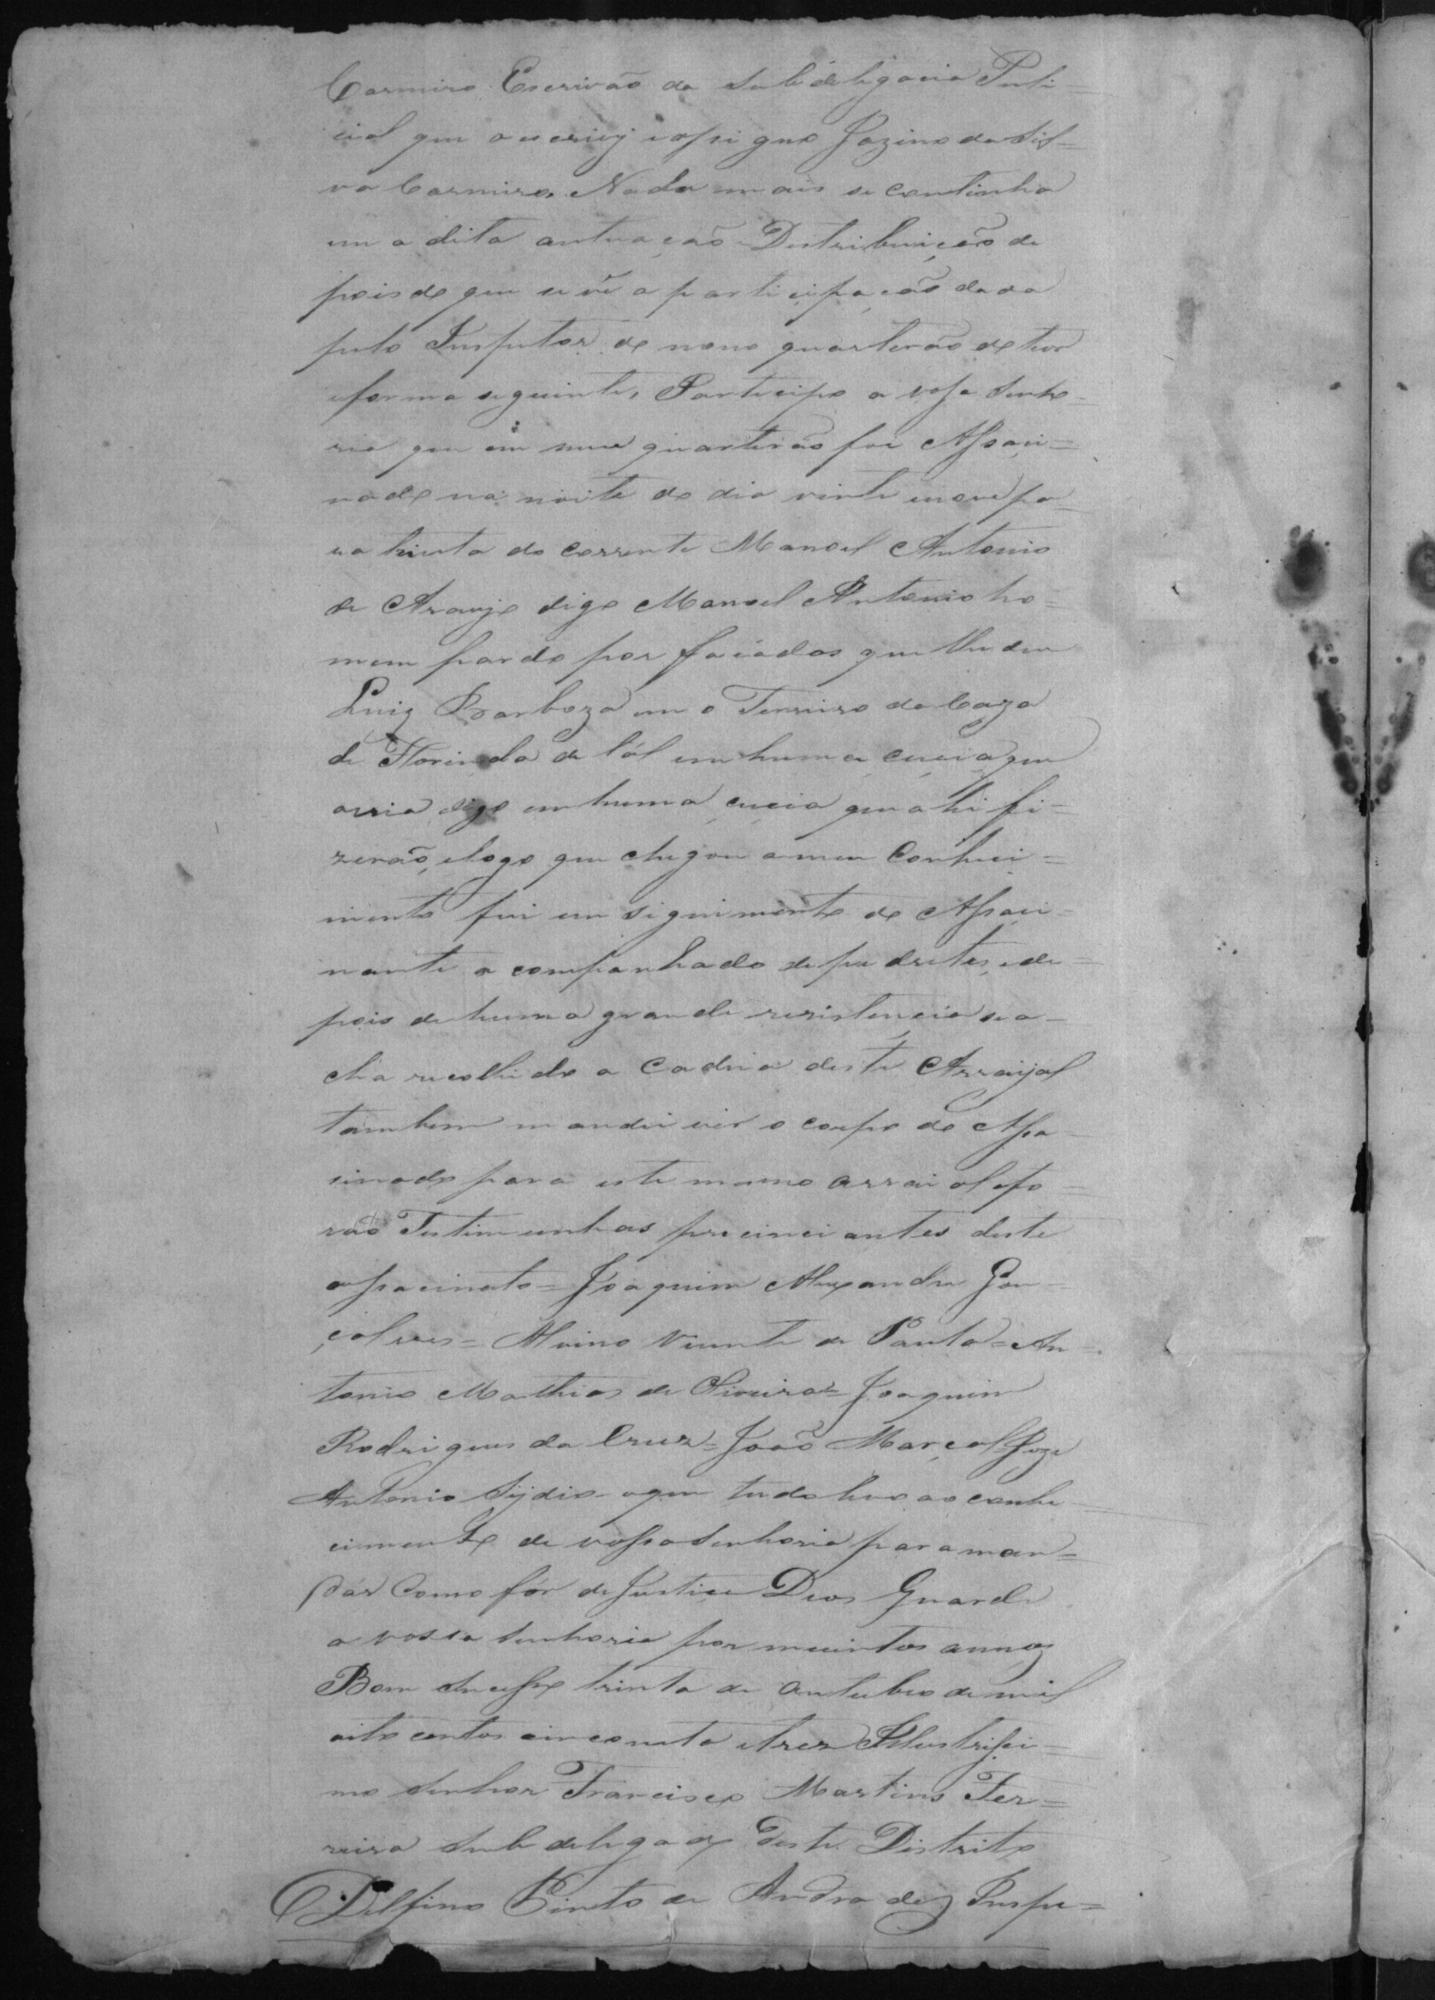 Carmiro Escrivão da Subdelegacia Puli=
cial que o escrivy e assigno Jozino da Sil=
va Carmiro, Nada mais se continha
em a dita autuação Destribuição de
pois do que se vê a participação dada
pelo Inspetor do nono quarteirão do teor
e forma seguinte, Participo a vossa Senho=
ria que em meu quarteirão foi Assaci=
nado na noite do dia vinte e nove pa=
ra trinta do corrente Manoel Antonio
de Araujo digo Manoel Antonio ho=
mem pardo por facadas que lhe deu
Luiz Barboza em o Terreiro da Caza
de Florinda de tál em huma cucia que
avia digo em huma cucia que ahi fi=
zerão, e logo que chegou a meu Conheci=
mento fui em siguimento do Assaci=
nante acompanhado de pedestes, e de=
pois de huma grande rezistencia se a=
cha recolhido a Cadeia deste Arraýal
tambem mandei vir o corpo do Assa=
cinado para este mesmo arraial e fo=
rão Testimunhas prezenciantes deste
assacinato= Joaquim Alexandre Gon=
çalves= Alvino Vicente de Paula= An=
tonio Mathias de Oliveira= Joaquim
Rodrigues da Cruz= João Marçal Joze
Antonio Sydio o que tudo levo ao conhe=
cimento de vossa Senhoria para man=
dár Como fôr de Justiça Deos Guarde
a vossa Senhoria por muintos annos
Bom Sucesso trinta de outubro de mil
oito centos cincoenta e trez Illustrissi=
mo Senhor Francisco Martins Fer=
reira Subdelegado deste Distrito
Delfino Pinto de Andrade Inspe=